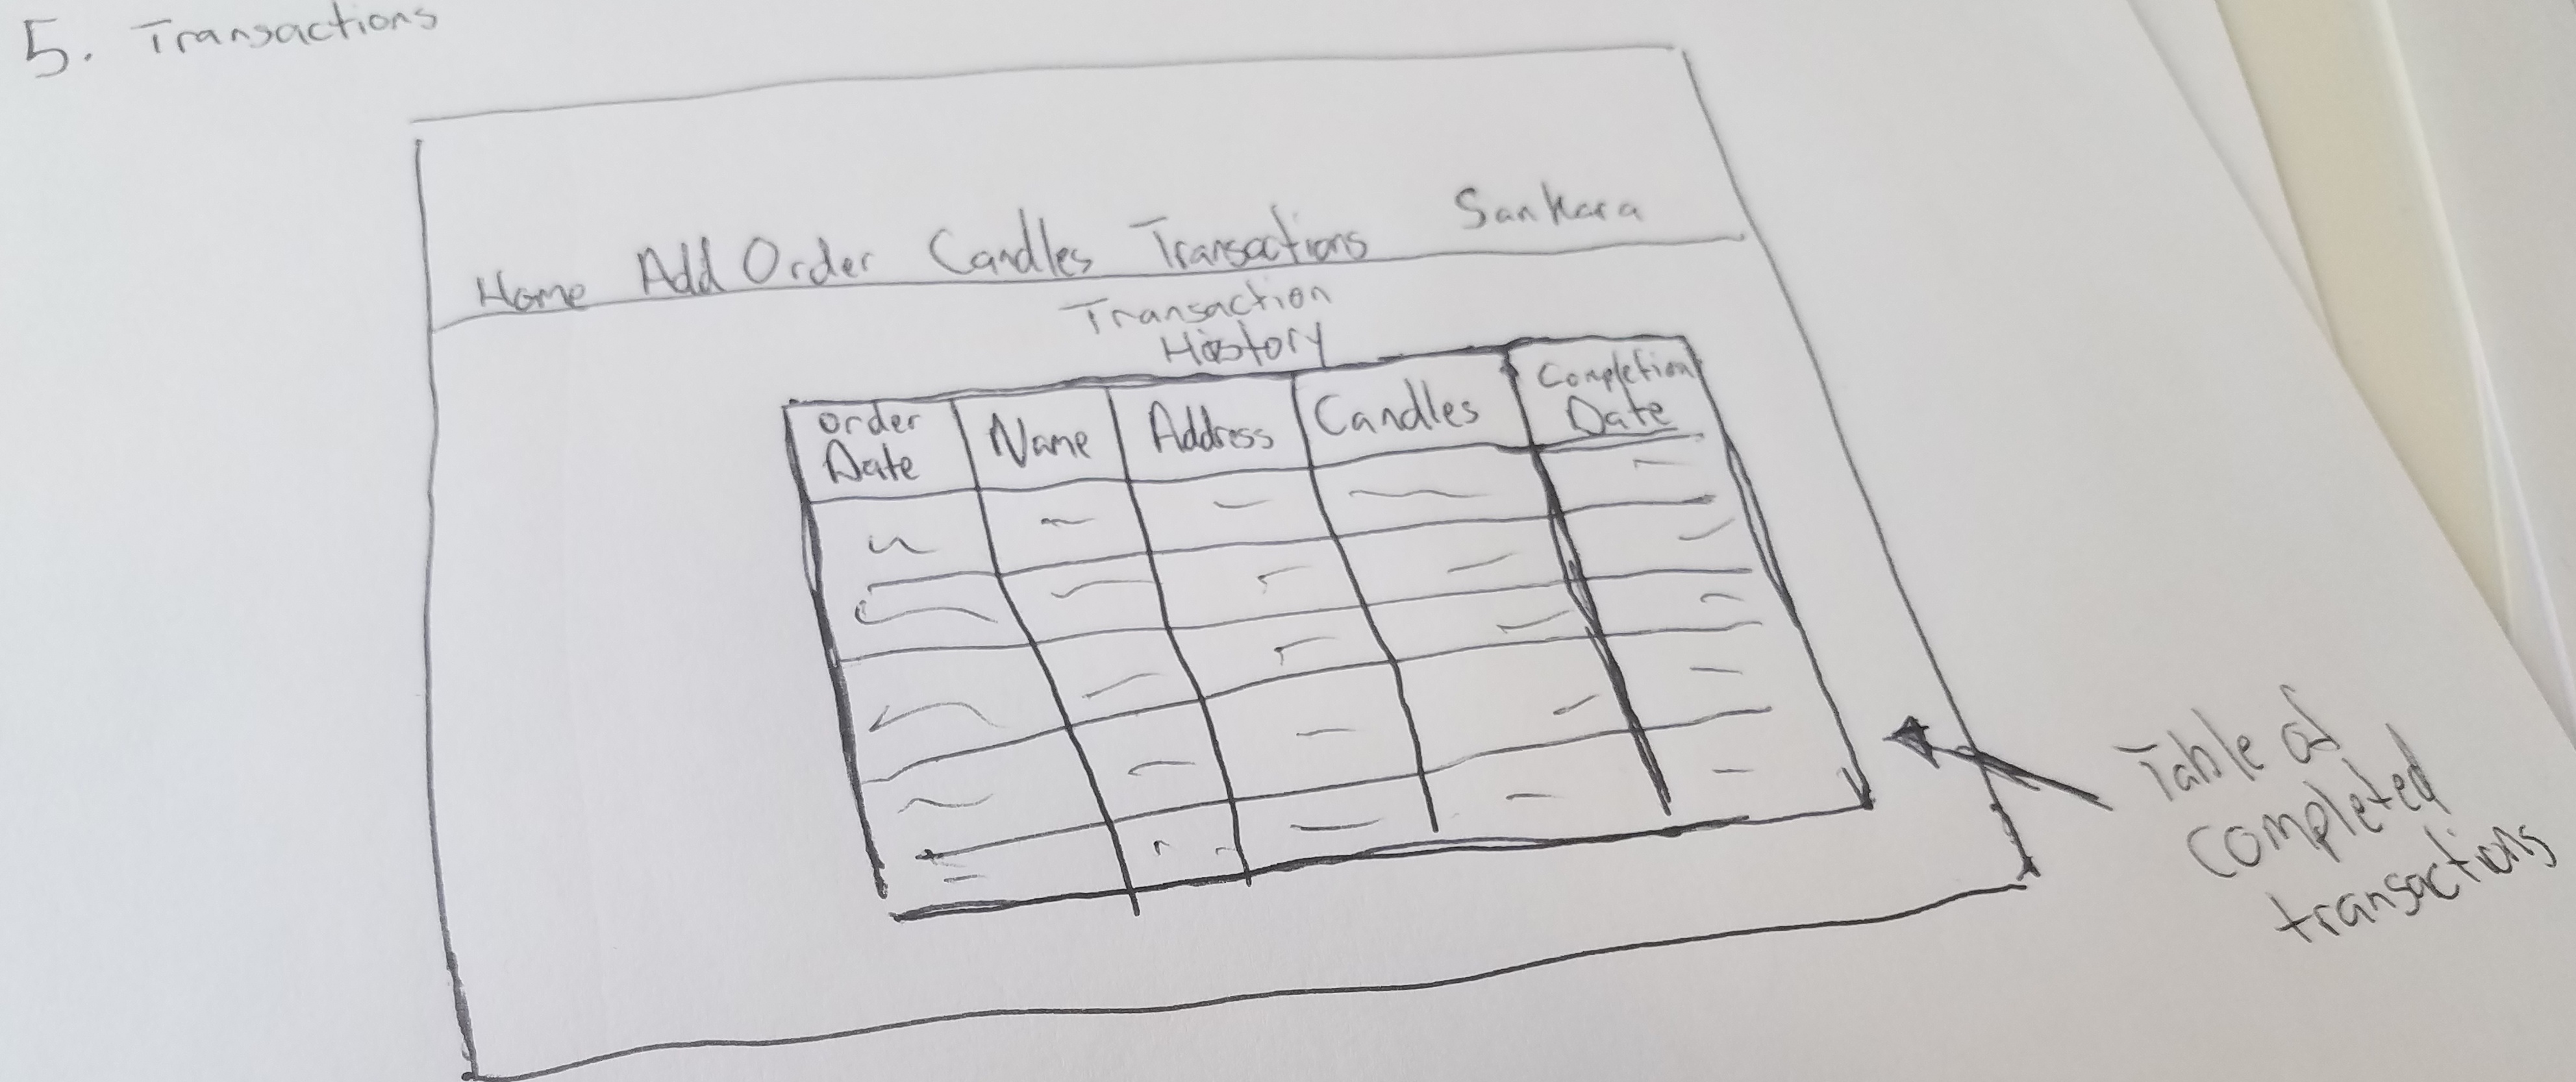 5. Transactions
Home Add Order Candles Transactions Sankara
Transaction
History
Order
Date
Name
Address
Candles
Completion
Date
Table of
completed
transactions